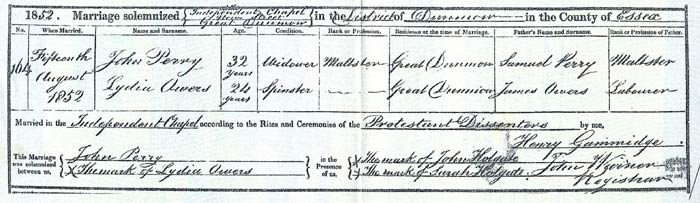 1852. Marriage solemnized Independent Chapel New Street Great Dunmow in the District of Dunmow in the County of Essex
No. When Married. Name and Surname. Age. Condition. Rank or Profession. Residence at the time of Marriage. Father's Name and Surname. Rank or Profession of Father.
164 Fifteenth August 1852 John Perry 32 years Widower Maltster Great Dunmow Samuel Perry Maltster
Lydia Owers 24 years Spinster Great Dunmow James Owers Labourer
Married in the Independent Chapel according to the Rites and Ceremonies of the Protestant Dissenters by me,
Henry Gammidge
This Marriage was solemnized between us, John Perry in the Presence of us, X The mark of John Holgate John
X The mark of Lydia Owers X The mark of Sarah Holgate Registrar